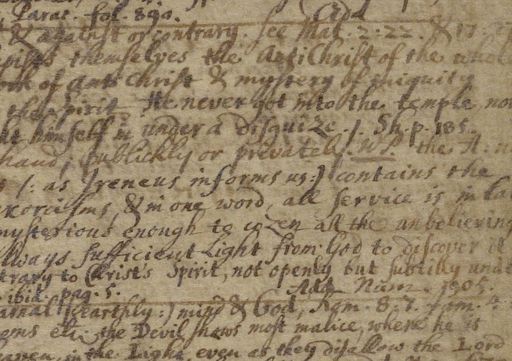 Parac. fol. 890. Add
& against or contrary. See Mat. 2. 22. & 17.
themselves the AntiChrist of the whole
of Anti Christ & mystery of iniquity
the spirit. He never got into the temple
himself in under a disguize. Sh. p. 185.
hand, publickly or privately. W.P. the A.
as Ireneus informs us:) contains the
exorcisms, & in one word, all service is in
mysterious enough to cozen all the unbelieving
always sufficient Light from God to discover it
contrary to Christs Spirit, not openly but subtilly
ibid. pag. 5. Add Num. 1905.
carnal (earthly:) mind & God, Rom. 8. 7.
the Devil shaws most malice, where he is
in the Light, even as they disallow the Lord